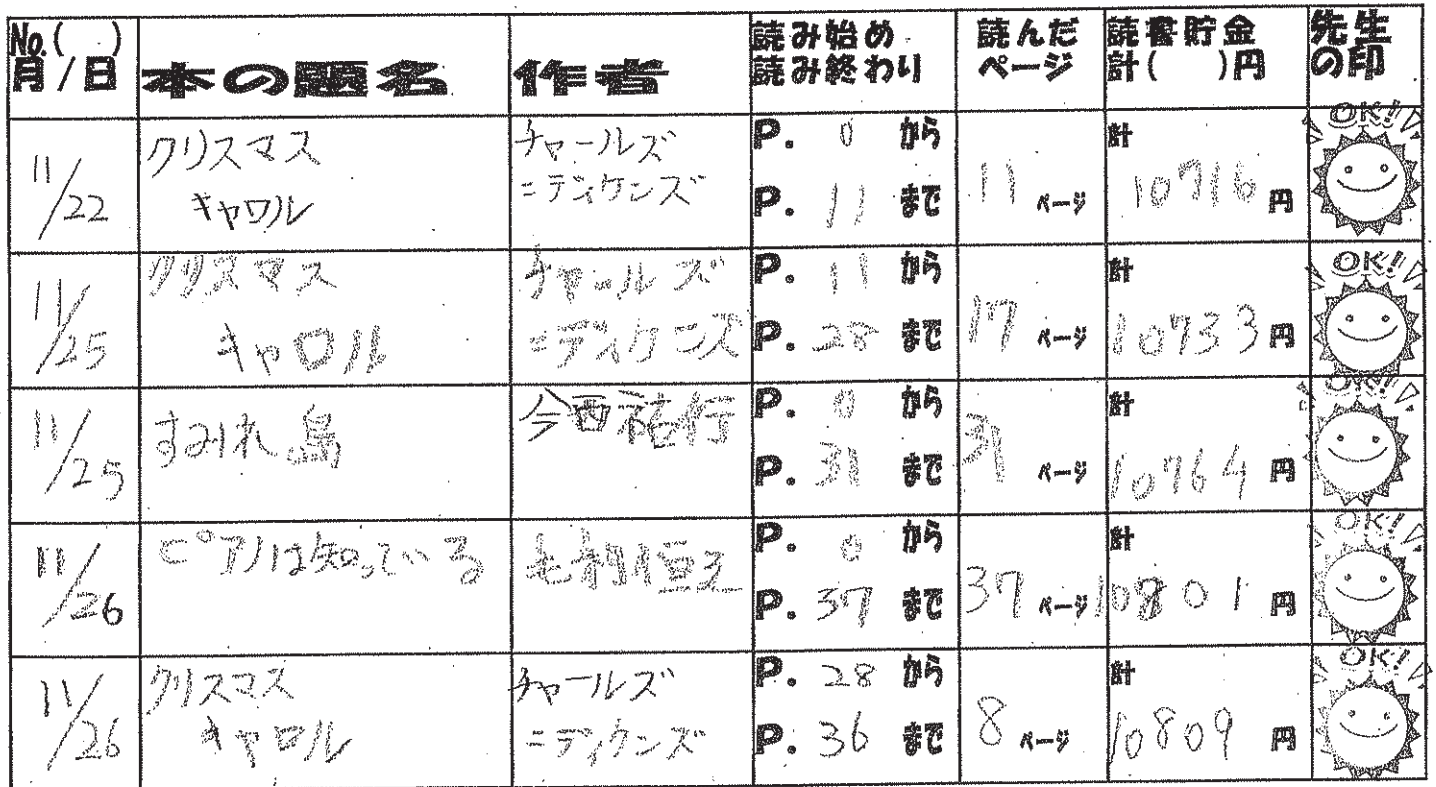 No.( )
月/日
本の題名
作者
読み始め
読み終わり
読んだ
ページ
読書貯金
計( )円
先生
の印
11/22
クリスマス
キャロル
チャールズ
=ディケンズ
P. 0 から
P. 11 まで
11 ページ
計
10716 円
OK!
11/25
クリスマス
キャロル
チャールズ
=ディケンズ
P. 11 から
P. 28 まで
17 ページ
計
10733 円
OK!
11/25
すみれ島
今西祐行
P. 0 から
P. 31 まで
31 ページ
計
10764 円
OK!
11/26
ピアノは知っている
P. 0 から
P. 37 まで
37 ページ
計
10801 円
OK!
11/26
クリスマス
キャロル
チャールズ
=ディケンズ
P. 28 から
P. 36 まで
8 ページ
計
10809 円
OK!